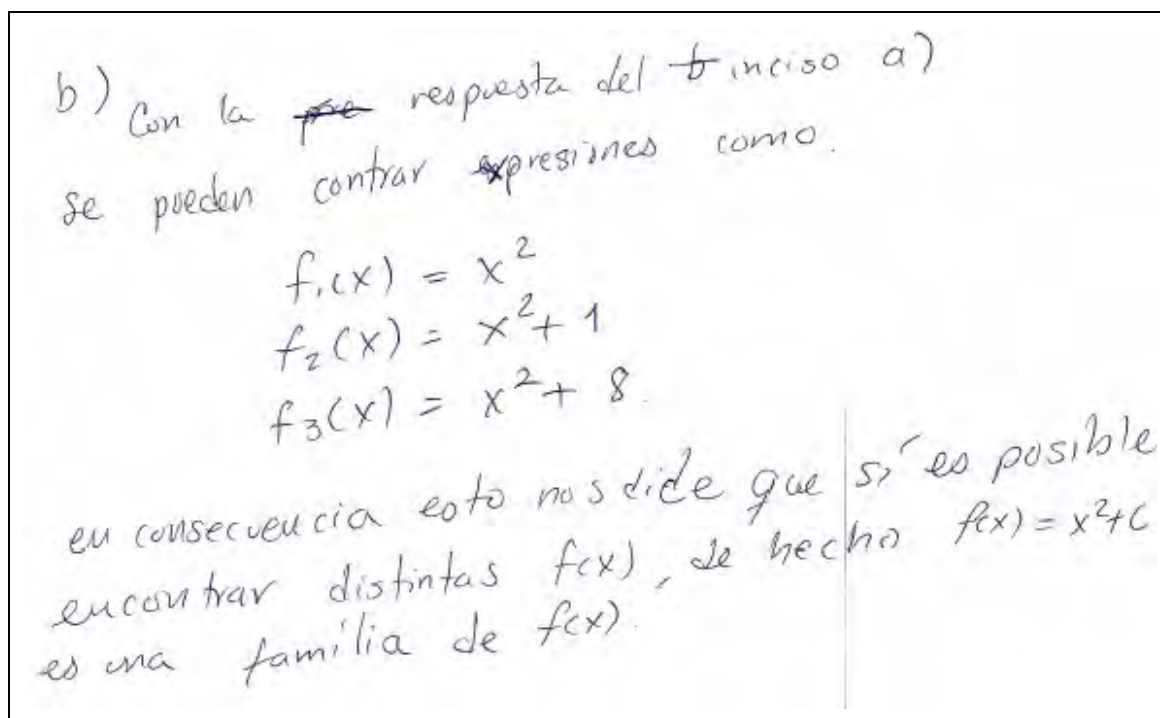 b) Con la respuesta del inciso a)
se pueden contrar expresiones como.
f₁(x) = x²
f₂(x) = x² + 1
f₃(x) = x² + 8.
en consecuencia esto nos dice que sí es posible
encontrar distintas f(x), de hecho f(x) = x²+C
es una família de f(x).